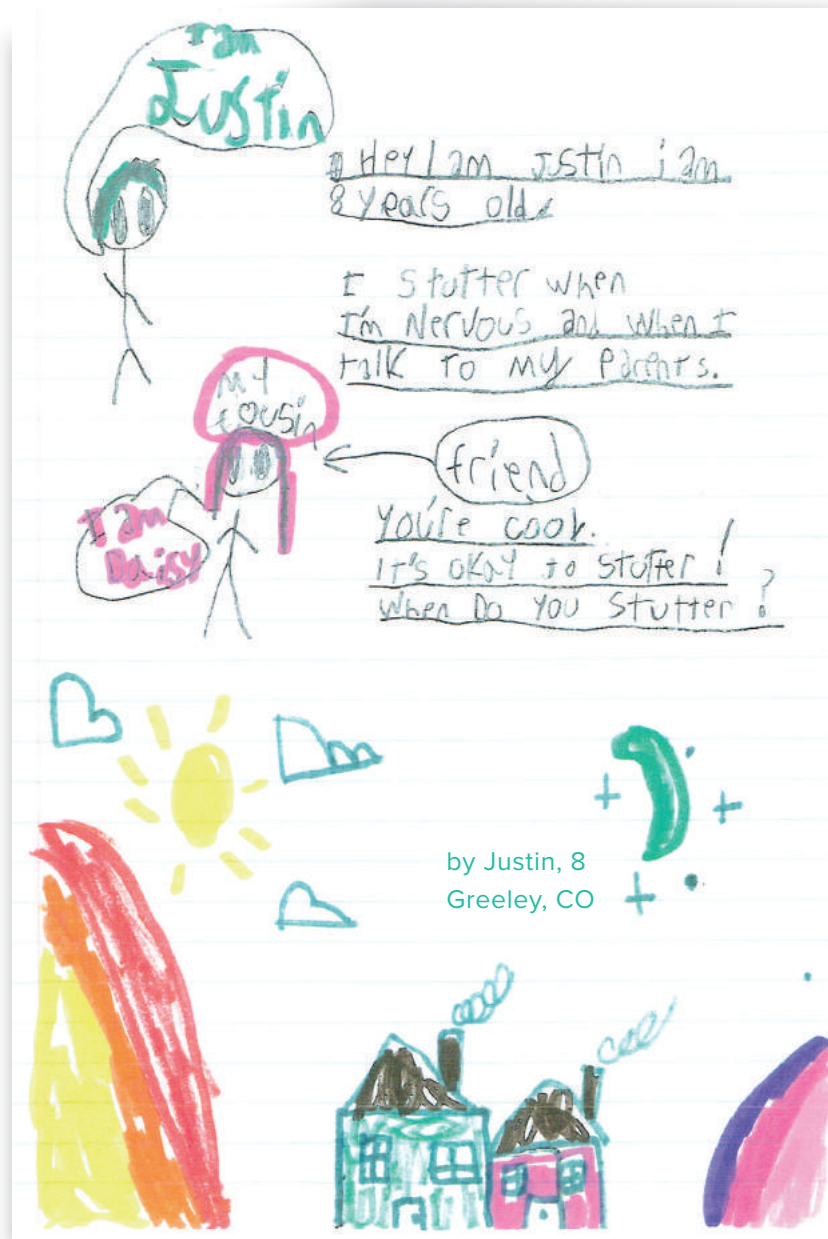 I am
Justin
Hey I am Justin i am
8 years old
I stutter when
I'm Nervous and when I
talk to my Parents.
my
cousin
friend
I am
Daisy
You're cool.
It's okay to stutter!
When Do You Stutter?
by Justin, 8
Greeley, CO